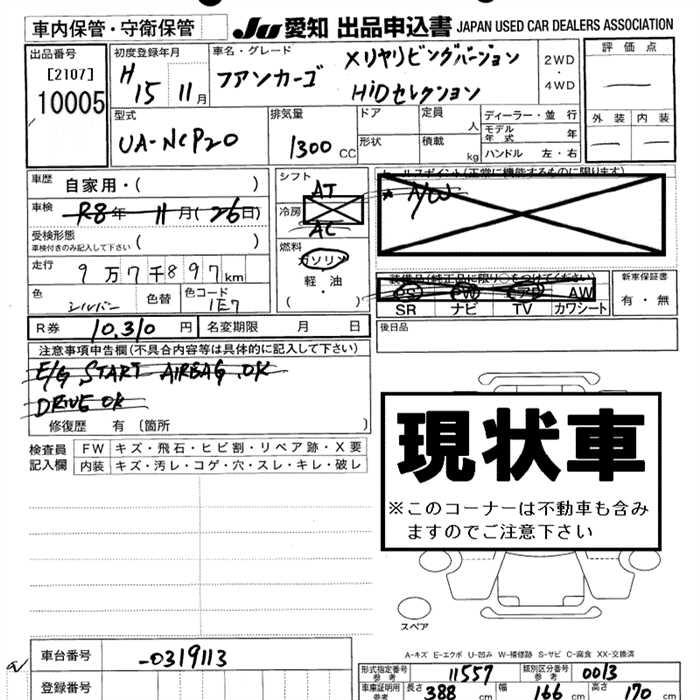 車内保管・守衛保管
JU 愛知 出品申込書 JAPAN USED CAR DEALERS ASSOCIATION
出品番号
[2107]
10005
初度登録年月
H 15 11月
車名・グレード
ファンカーゴ
Xリヤリビングバージョン
HiDセレクション
2WD
・
4WD
評価点
外装 内装
型式
UA-NCP20
排気量
1300 CC
ドア
定員
人
形状
積載
kg
ディーラー・並行
モデル年式 年
ハンドル 左・右
車歴 自家用・( )
車検 R8年 11月(26日)
受検形態
車検付きのみ記入して下さい ( )
走行 9万7千897km
色 シルバー
色替
色コード 1E7
R券 10,310円
名変期限 月 日
シフト AT
冷房 AC
燃料
ガソリン
軽・油
・
( )
セールスポイント(正常に機能するものに限ります)
* A/W
装備品(純正品に限り○をつけてください)
AW
SR ナビ TV カワシート
新車保証書
有・無
後日品
注意事項申告欄(不具合内容等は具体的に記入して下さい)
E/G START AIRBAG OK
DRIVE OK
修復歴 有〔箇所 〕
検査員記入欄
FW キズ・飛石・ヒビ割・リペア跡・X要
内装 キズ・汚レ・コゲ・穴・スレ・キレ・破レ
現状車
※このコーナーは不動車も含み
ますのでご注意下さい
スペア
A-キズ E-エクボ U-凹み W-補修跡 S-サビ C-腐食 XX-交換済
車台番号 -0319113
登録番号
形式指定番号 参考 11557
類別区分番号 参考 0013
車庫証明用 参考 長さ 388 cm 幅 166 cm 高さ 170 cm